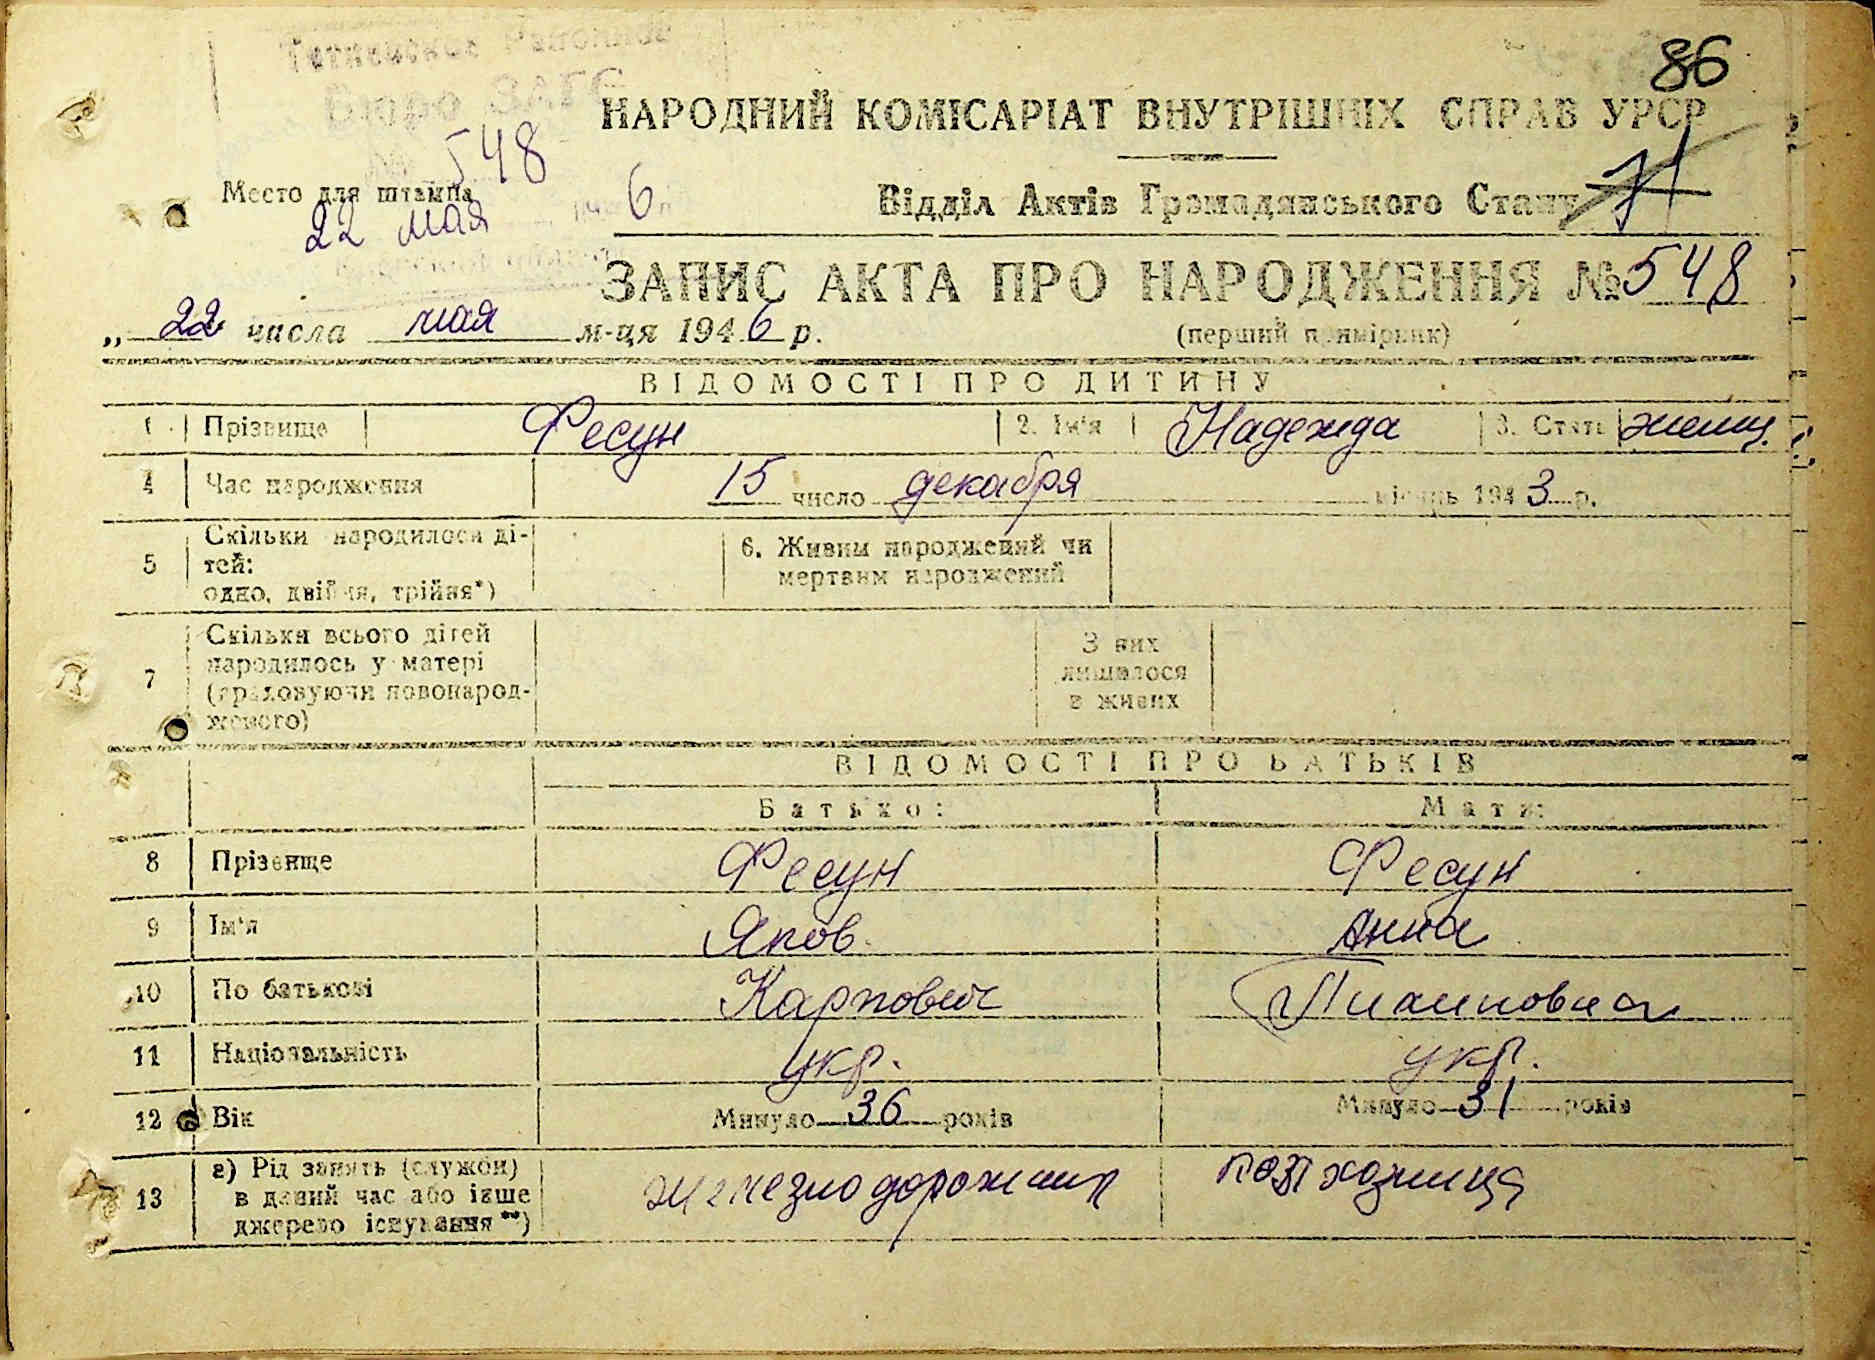 86
Бюро ЗАГС
НАРОДНИЙ КОМІСАРІАТ ВНУТРІШНІХ СПРАВ УРСР
548
71
Место для штампа
6
Відділ Актів Громадянського Стану
22 мая
ЗАПИС АКТА ПРО НАРОДЖЕННЯ № 548
„ 22 числа мая м-ця 1946 р.
(перший примірник)
ВІДОМОСТІ ПРО ДИТИНУ
1 Прізвище Фесун 2. Ім'я Надежда 3. Стать женщ.
4 Час народження 15 число декабря місяць 1943 р.
5 Скільки народилося ді-
тей:
одно, двійня, трійня*)
6. Живим народжений чи
мертвим народжений
7 Скільки всього дітей
народилось у матері
(враховуючи новонарод-
женого)
З них
лишилося
в живих
ВІДОМОСТІ ПРО БАТЬКІВ
Батько: Мати:
8 Прізвище Фесун Фесун
9 Ім'я Яков. Анна
10 По батькові Карпович Пилиповна
11 Національність укр. укр.
12 Вік Минуло 36 років Минуло 31 років
13 а) Рід занять (служби)
в даний час або інше
джерело існування**)
железнодорожник